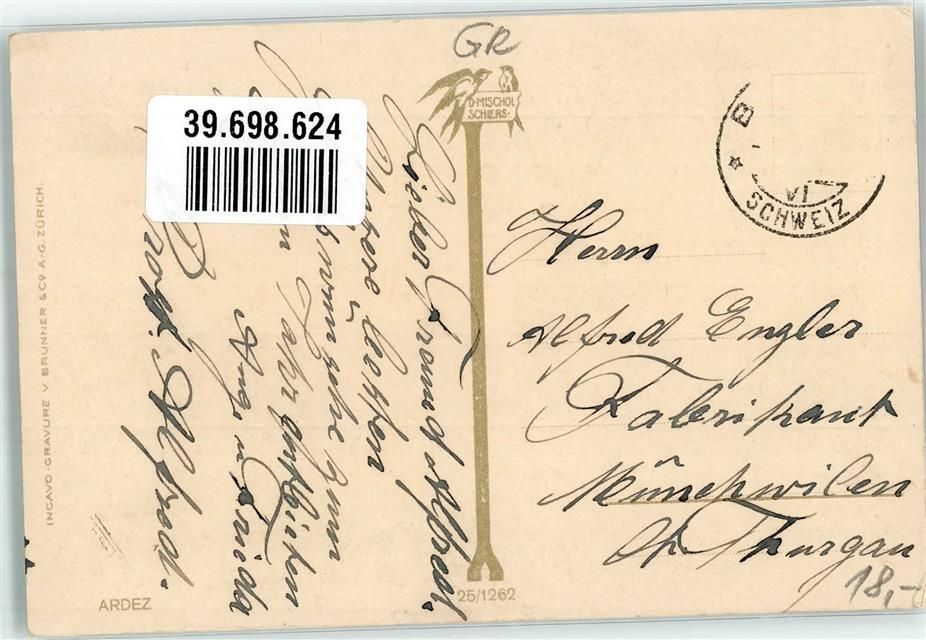 GR
D·MISCHOL
SCHIERS·
39.698.624
SCHWEIZ
VI
Herrn
Alfred Engler
Fabrikant
Münchwilen
Ct. Thurgau
18,-
Lieber Freund Alfred.
Unsere besten
zum
Jahr entbieten
Aug. u. Frieda
Alfred.
INGAVO-GRAVURE V. BRUNNER & Cº A.-G. ZÜRICH.
ARDEZ
25/1262